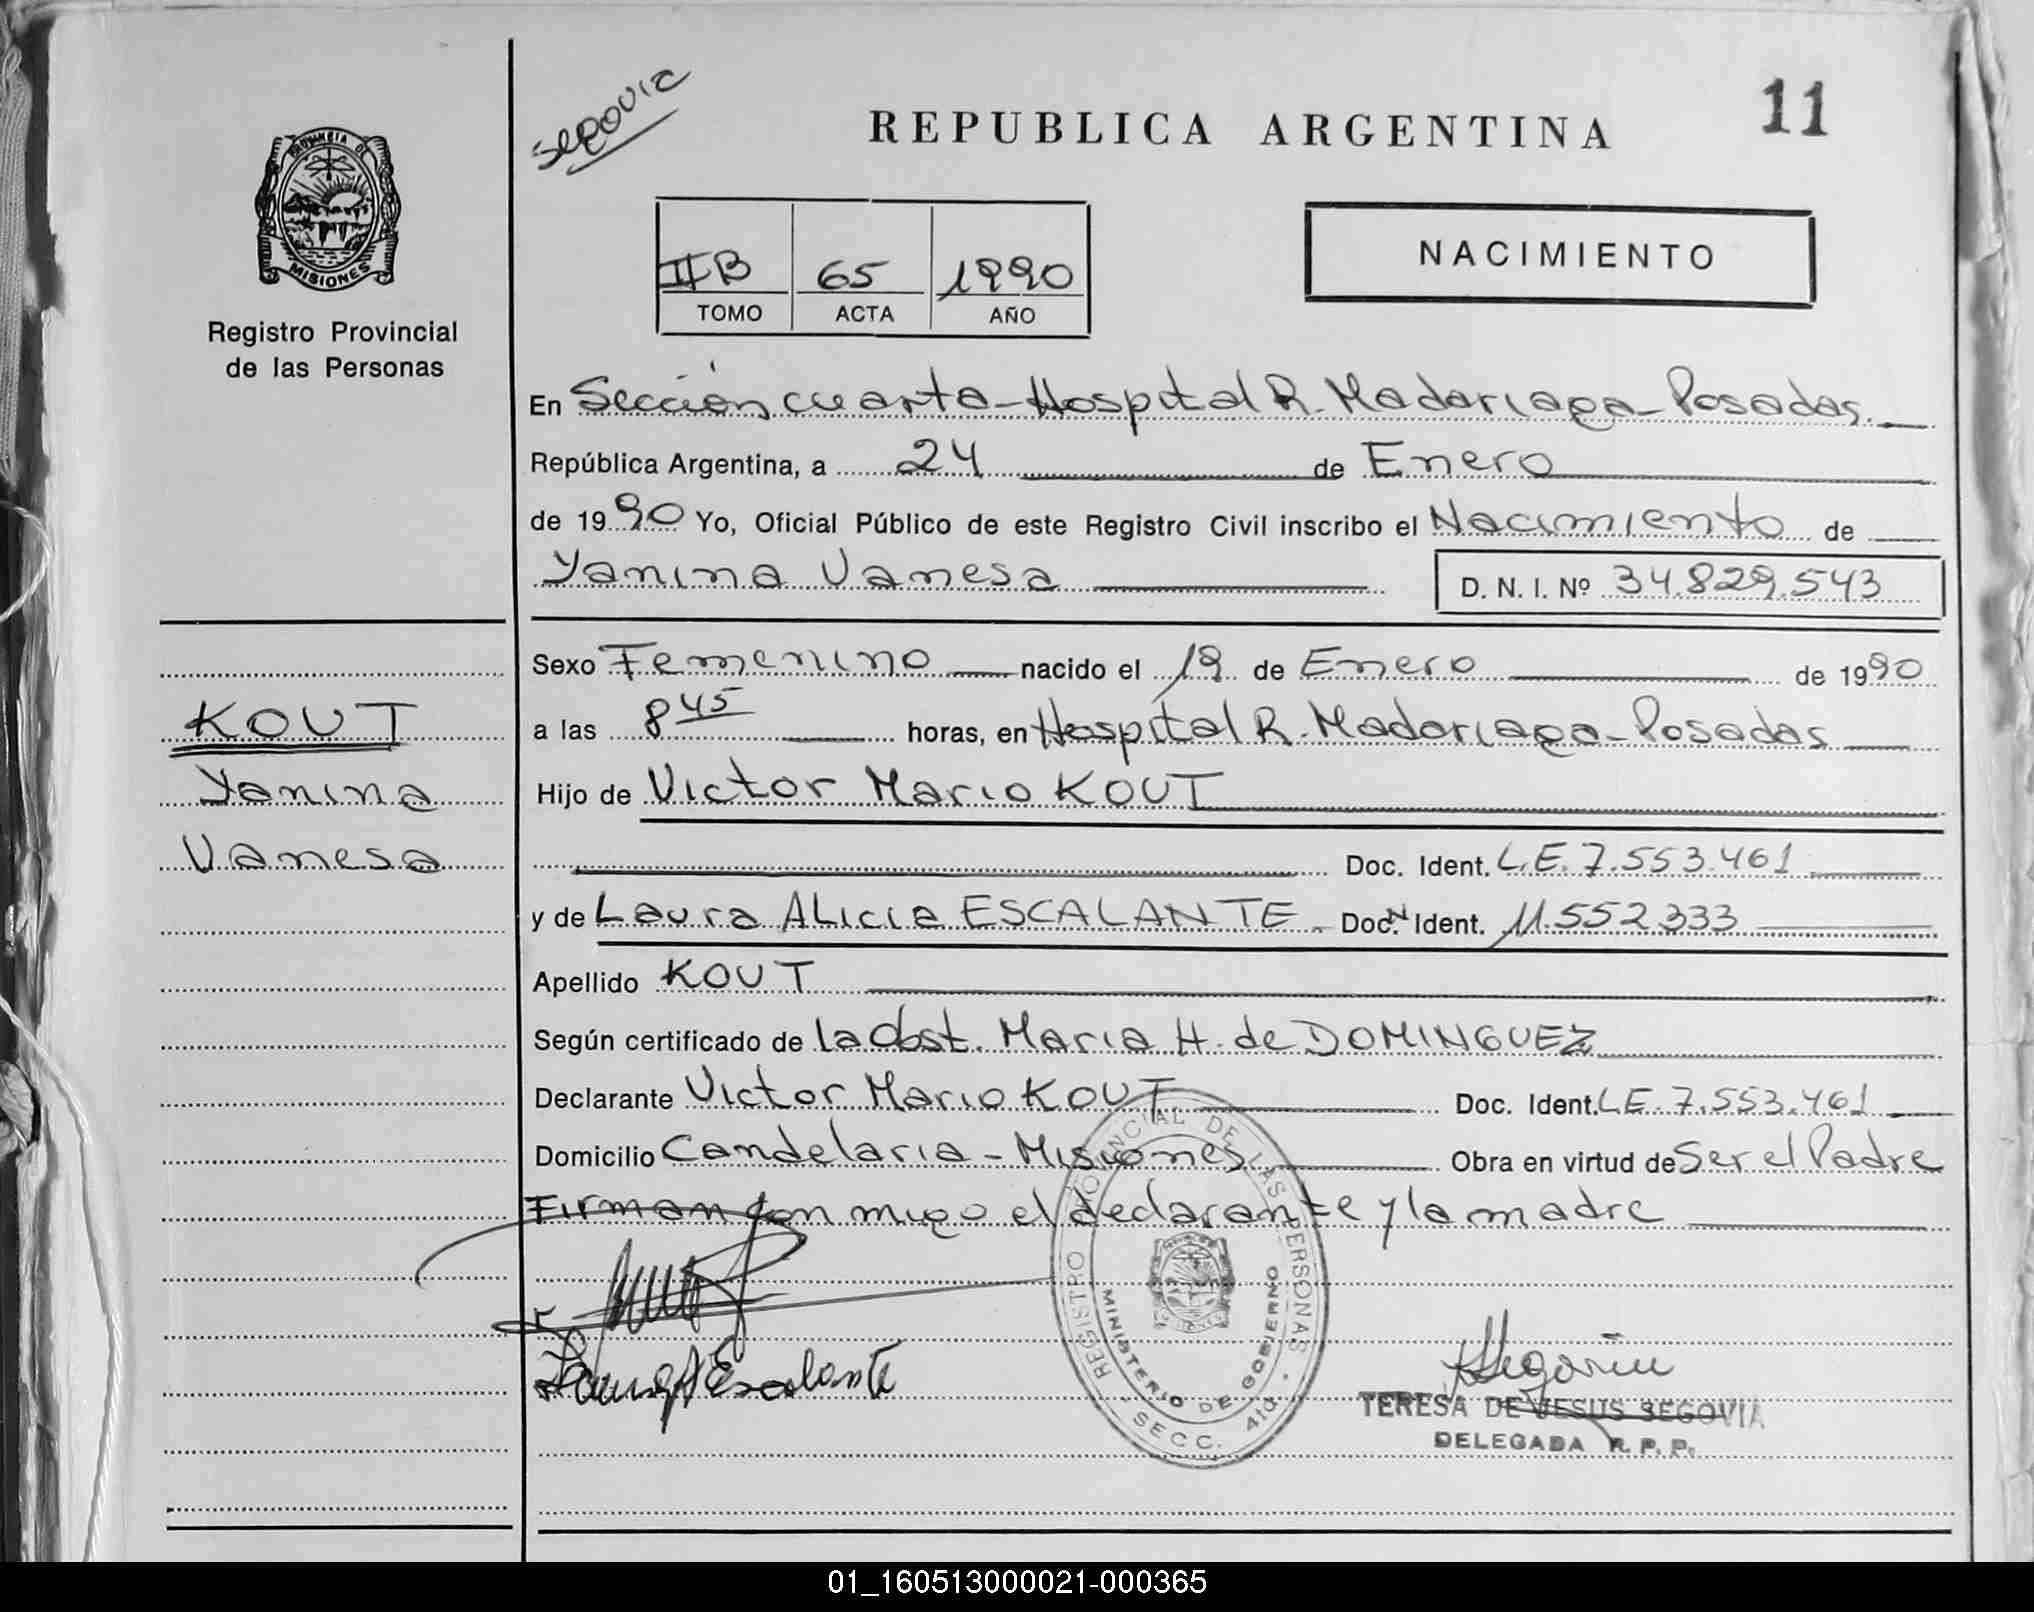 PROVINCIA DE
MISIONES
Registro Provincial
de las Personas
KOUT
Yanina
Vanesa
Segovia
REPUBLICA ARGENTINA
11
IIB 65 1990
TOMO ACTA AÑO
NACIMIENTO
En Sección cuarta-Hospital R. Madariaga-Posadas.
República Argentina, a 24 de Enero
de 1990 Yo, Oficial Público de este Registro Civil inscribo el Nacimiento de
Yanina Vanesa D. N. I. Nº 34.829.543
Sexo Femenino nacido el 19 de Enero de 1990
a las 8 45 horas, en Hospital R. Madariaga-Posadas
Hijo de Victor Mario KOUT
Doc. Ident. L.E. 7.553.461
y de Laura ALicia ESCALANTE. Doc. Ident. 11.552.333
Apellido KOUT
Según certificado de la Obst. Maria H. de DOMINGUEZ
Declarante Victor Mario KOUT Doc. Ident. L.E. 7.553.461
Domicilio Candelaria - Misiones Obra en virtud de Ser el Padre
Firman con migo el declarante y la madre
Laura A Escalante
REGISTRO PROVINCIAL DE LAS PERSONAS
MINISTERIO DE GOBIERNO
SECC. 4ta.
Segovia
TERESA DE JESUS SEGOVIA
DELEGADA R. P. P.
01_160513000021-000365